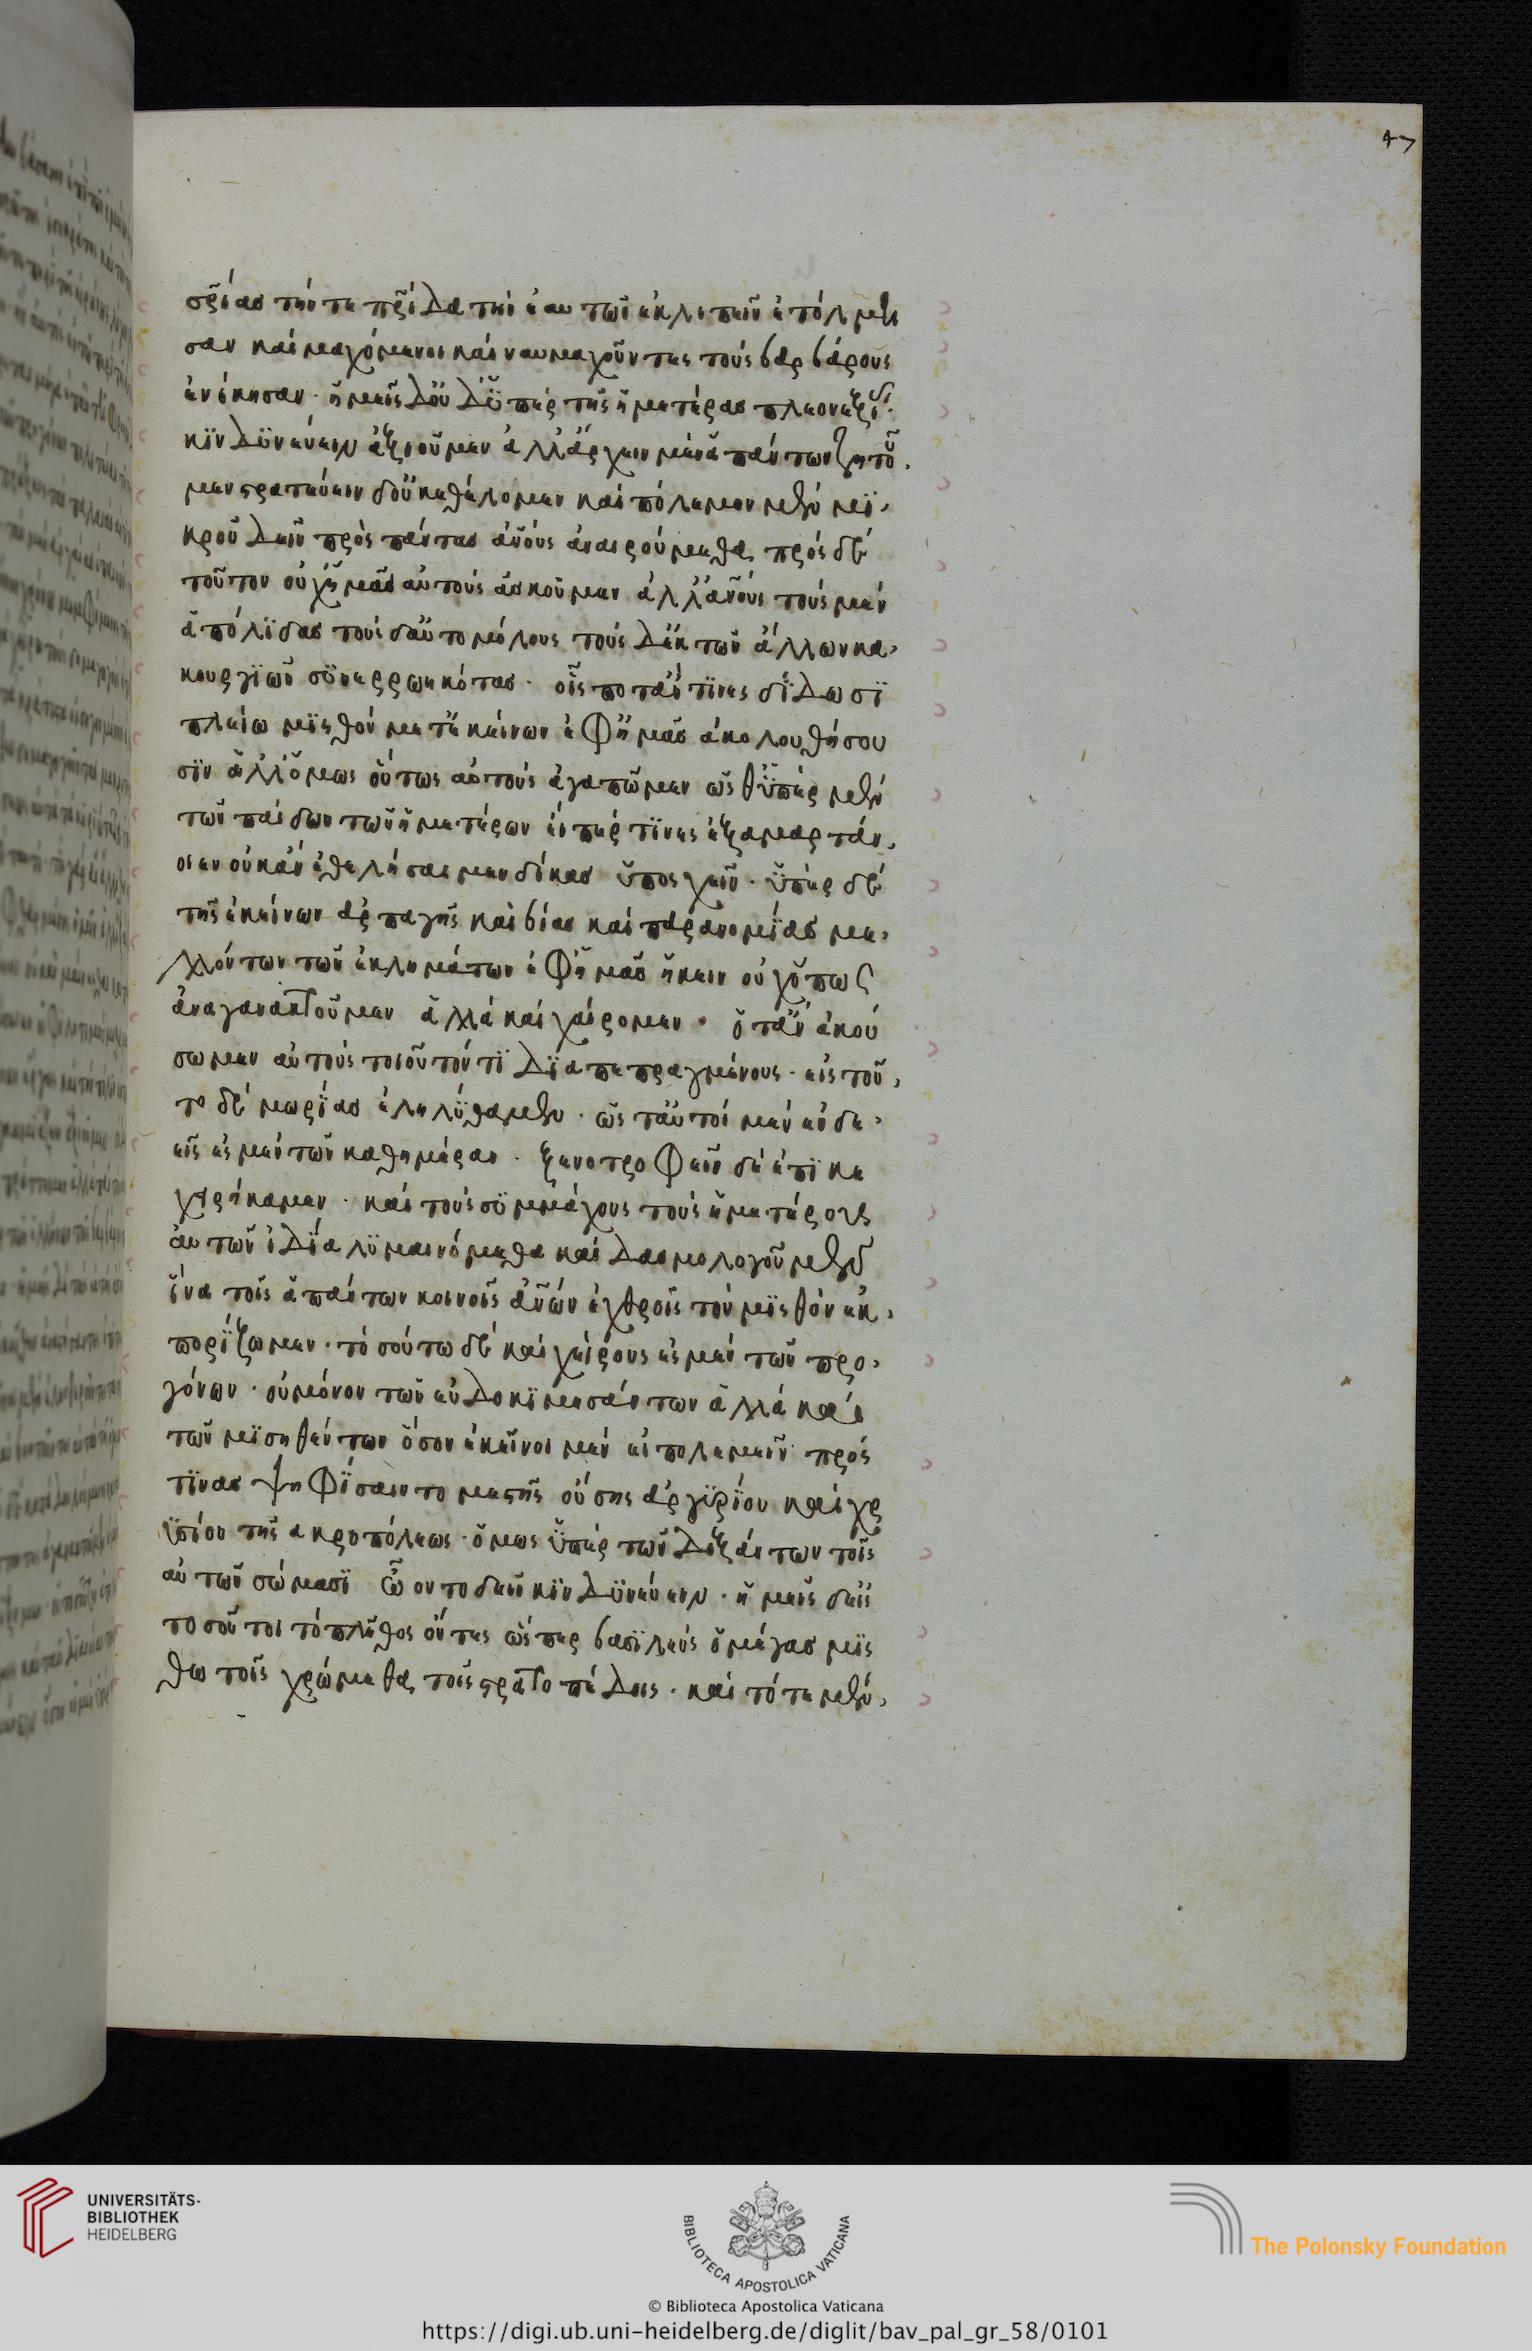 σρίας τήν τε πρίδα τὴν ἑαυτῶν ἐκλιπεῖν ἐτόλμη
σαν καὶ μαχόμενοι καὶ ναυμαχοῦντες τοὺς βαρβάρους
ἐνίκησαν· ἡμεῖς δ' οὐδ' ὑπὲρ τῆς ἡμετέρας πλεονεξίας
κινδυνεύειν ἀξιοῦμεν ἀλλ' ἄρχειν μὲν ἁπάντων ζητοῦ
μεν στρατεύειν δ' οὐκ ἐθέλομεν καὶ πόλεμον μὲν μι
κροῦ δεῖν πρὸς πάντας ἀνους ἀναιρούμεθα, πρὸς δὲ
τοῦτον οὐχ ἡμᾶς αὐτοὺς ἀσκοῦμεν ἀλλ' ἀνους τοὺς μὲν
ἀπόλιδας τοὺς δ' αὐτομόλους τοὺς δ' ἐκ τῶν ἄλλων κα
κουργιῶν συνερρωηκότας· οἷς ποτ' ἄν τινες διδωσι
πλείω μισθὸν μετ' ἐκείνων ἐφ' ἡμᾶς ἀκολουθήσου
σιν ἀλλ' ὅμως οὕτως αὐτοὺς ἀγαπῶμεν ὥσθ' ὑπὲρ μὲν
τῶν παίδων τῶν ἡμετέρων εἰ πέρ τινες ἐξαμαρτάν
οιεν οὐκ ἂν ἐθελήσαιμεν δίκας ὑποσχεῖν· ὑπὲρ δὲ
τῆς ἐκείνων ἁρπαγῆς καὶ βίας καὶ παρανομίας με
λλόντων τῶν ἐκλημάτων ἐφ' ἡμᾶς ἥκειν οὐχ ὅπως
ἀναγανακτοῦμεν ἀλλὰ καὶ χαίρομεν· ὅταν ἀκού
σωμεν αὐτοὺς τοιοῦτόν τι διαπεπραγμένους· εἰς τοῦ
το δὲ μωρίας ἐληλύθαμεν· ὥστ' αὐτοὶ μὲν ἐνδε
εῖς ἐσμὲν τῶν καθημέραν· ξενοτροφεῖν δὲ ἐπικε
χειρήκαμεν· καὶ τοὺς συμμάχους τοὺς ἡμετέρους
αυτῶν ἰδία λυμαινόμεθα καὶ δασμολογοῦμεν
ἵνα τοῖς ἁπάντων κοινοῖς ἀνων ἐχθροῖς τὸν μισθὸν ἐκ
πορίζωμεν· τοσούτω δὲ καὶ χείρους ἐσμὲν τῶν προ
γόνων· οὐ μόνον τῶν εὐδοκιμησάντων ἀλλὰ καὶ
τῶν μισηθέντων ὅσον ἐκεῖνοι μὲν εἰ πολεμεῖν πρός
τινας ψηφίσαιντο μεστῆς οὔσης ἀργυρίου καὶ χρ
υσίου τῆς ακροπόλεως· ὅμως ὑπὲρ τῶν δοξάντων τοῖς
αὑτῶν σώμασι ᾤοντο δεῖν κινδυνεύειν· ἡμεῖς δ' εἰς
τοσοῦτοι τὸ πλῆθος ὄντες ὥσπερ βασιλεὺς ὁ μέγας μισ
θωτοῖς χρώμεθα τοῖς στρατοπέδοις· καὶ τότε μὲν
47
UNIVERSITÄTS-
BIBLIOTHEK
HEIDELBERG
BIBLIOTECA APOSTOLICA VATICANA
The Polonsky Foundation
© Biblioteca Apostolica Vaticana
https://digi.ub.uni-heidelberg.de/diglit/bav_pal_gr_58/0101